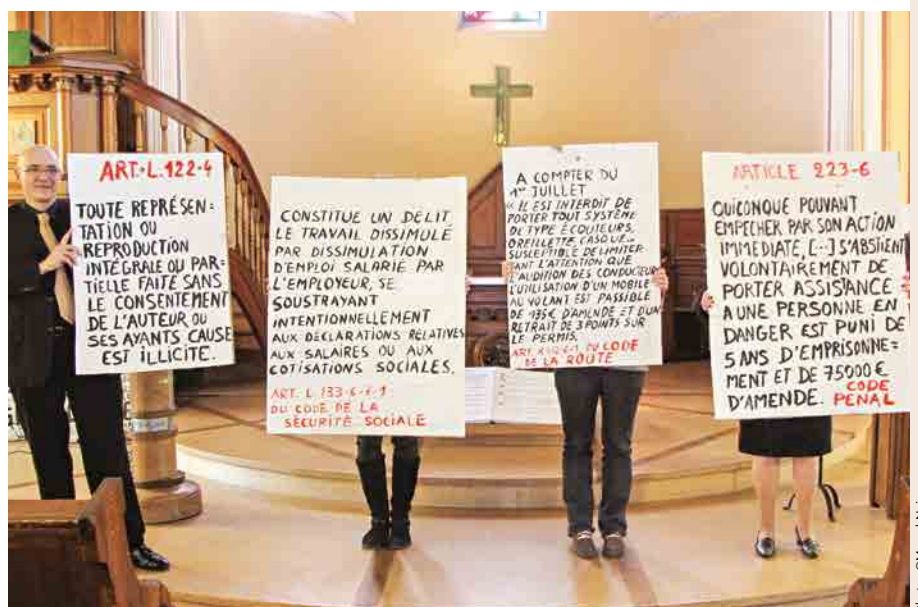 ART. L. 122-4
TOUTE REPRÉSEN=
TATION OU
REPRODUCTION
INTÉGRALE OU PAR=
TIELLE FAITE SANS
LE CONSENTEMENT
DE L'AUTEUR OU
SES AYANTS CAUSE
EST ILLICITE.
CONSTITUE UN DÉLIT
LE TRAVAIL DISSIMULÉ
PAR DISSIMULATION
D'EMPLOI SALARIÉ PAR
L'EMPLOYEUR, SE
SOUSTRAYANT
INTENTIONNELLEMENT
AUX DÉCLARATIONS RELATIVES
AUX SALAIRES OU AUX
COTISATIONS SOCIALES.
ART. L 133-6-
DU CODE DE LA
SÉCURITÉ SOCIALE
A COMPTER DU
1er JUILLET
« IL EST INTERDIT DE
PORTER TOUT SYSTÈME
DE TYPE ÉCOUTEURS,
OREILLETTE, CASQUE...
SUSCEPTIBLE DE LIMITER
TANT L'ATTENTION QUE
L'AUDITION DES CONDUCTEURS
L'UTILISATION D'UN MOBILE
AU VOLANT EST PASSIBLE
DE 135€ D'AMENDE ET D'UN
RETRAIT DE 3 POINTS SUR
LE PERMIS.
DU CODE
DE LA ROUTE
ARTICLE 223-6
QUICONQUE POUVANT
EMPECHER PAR SON ACTION
IMMÉDIATE, [...] S'ABSTIENT
VOLONTAIREMENT DE
PORTER ASSISTANCE
A UNE PERSONNE EN
DANGER EST PUNI DE
5 ANS D'EMPRISONNE=
MENT ET DE 75000 €
D'AMENDE. CODE
PENAL